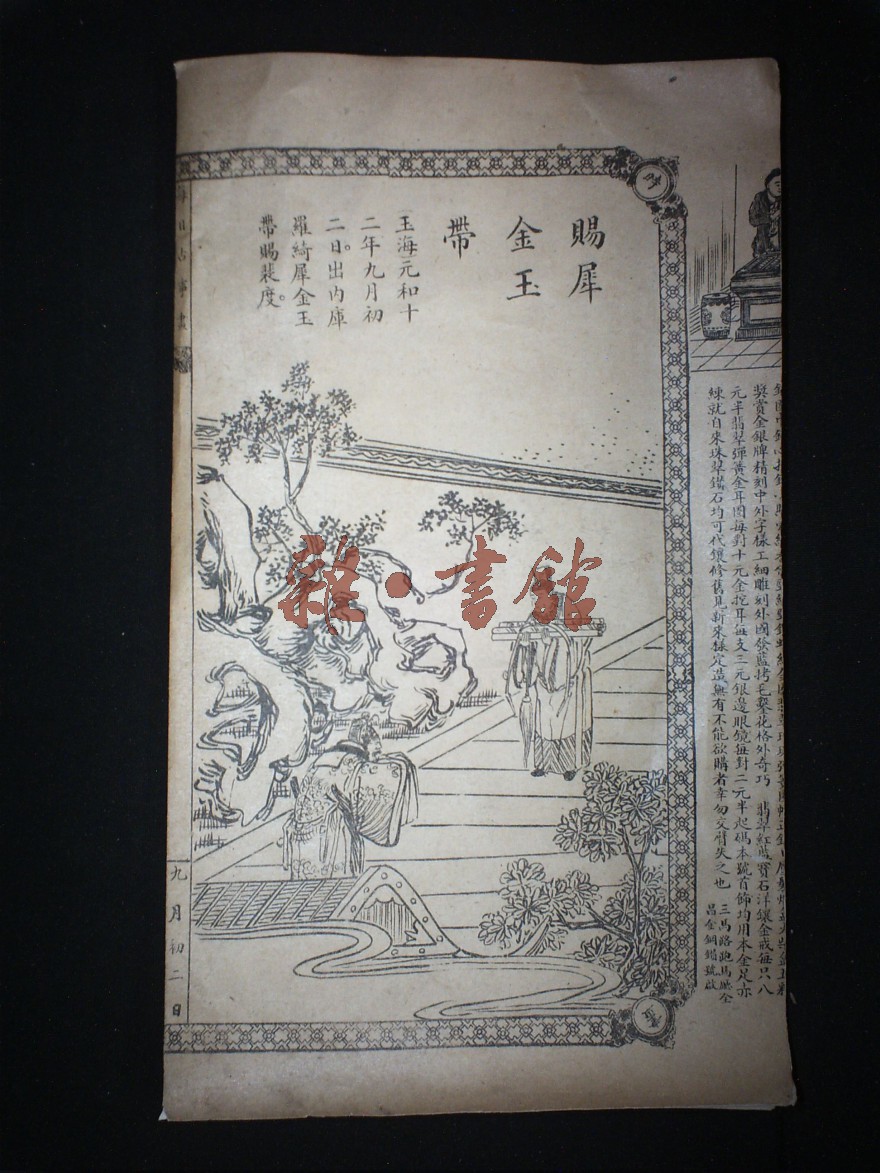 賜犀
金玉
帶
玉海元和十
二年九月初
二日。出內庫
羅綺犀金玉
帶賜裴度。
每日古事畫
九月初二日
獎賞金銀牌精刻中外字樣工細雕刻外國發藍拷毛鑿花格外奇巧 翡翠紅藍寶石洋鑲金戒每只八
元半翡翠彈黃金耳圈每對十元金挖耳每支三元銀邊眼鏡每對二元半起碼本號首飾均用本金足赤
練就自來珠翠鑽石均可代鑲修舊見新來樣定造無有不能欲購者幸勿交臂失之也
三馬路跑馬廳全
昌金銅錫號啟
雜·書館